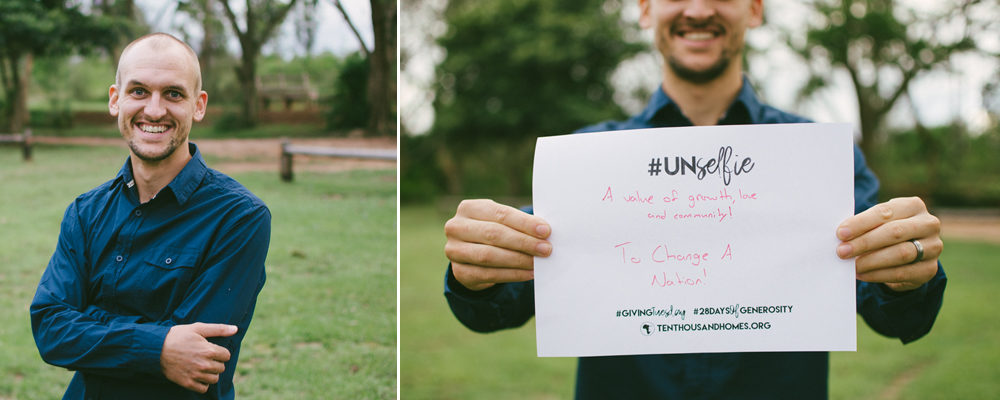 #UNselfie
A value of growth, love
and community!
To Change A
Nation!
#GIVINGTuesday #28DAYSOfGENEROSITY
TENTHOUSANDHOMES.ORG